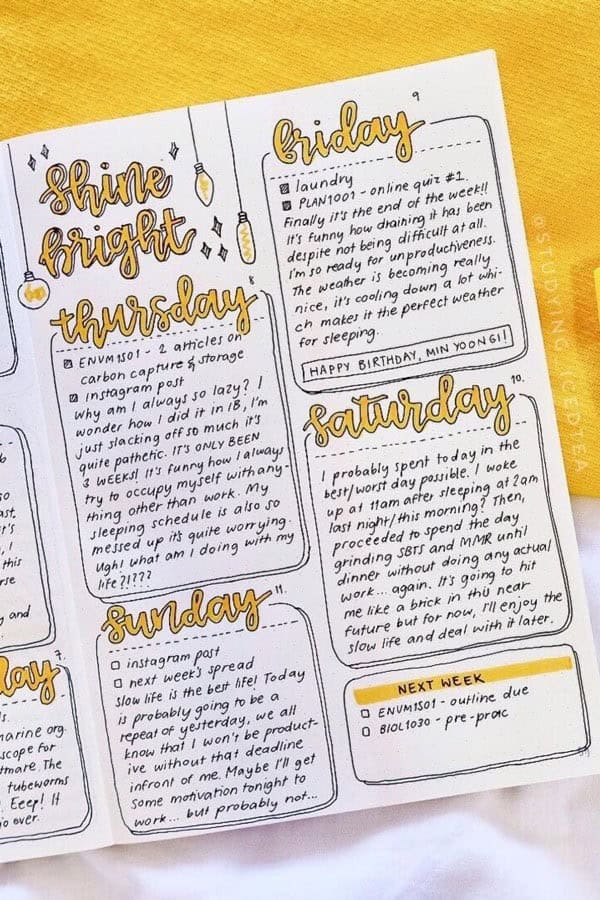 shine
bright
8
thursday
ENVM1501 - 2 articles on
carbon capture & storage
Instagram post
Why am I always so lazy? I
wonder how I did it in IB, I'm
just slacking off so much it's
quite pathetic. IT'S ONLY BEEN
3 WEEKS! It's funny how I always
try to occupy myself with any-
thing other than work. My
sleeping schedule is also so
messed up it's quite worrying.
Ugh! what am I doing with my
life?!???
9
friday
laundry
PLAN1001 - online quiz #1.
Finally it's the end of the week!!
It's funny how draining it has been
despite not being difficult at all.
I'm so ready for unproductiveness.
The weather is becoming really
nice, it's cooling down a lot whi-
ch makes it the perfect weather
for sleeping.
HAPPY BIRTHDAY, MIN YOONGI!
10.
saturday
I probably spent today in the
best/worst day possible. I woke
up at 11am after sleeping at 2am
last night/this morning? Then,
proceeded to spend the day
grinding SBTS and MMR until
dinner without doing any actual
work... again. It's going to hit
me like a brick in this near
future but for now, I'll enjoy the
slow life and deal with it later.
11.
sunday
instagram post
next week's spread
slow life is the best life! Today
is probably going to be a
repeat of yesterday, we all
know that I won't be product-
ive without that deadline
infront of me. Maybe I'll get
some motivation tonight to
work... but probably not...
NEXT WEEK
ENVM1501 - outline due
BIOL1030 - pre-prac
7.
day
marine org.
scope for
tmare. The
tubeworms
Eeep! It
go over.
this
and
@STUDYING.ICEDTEA